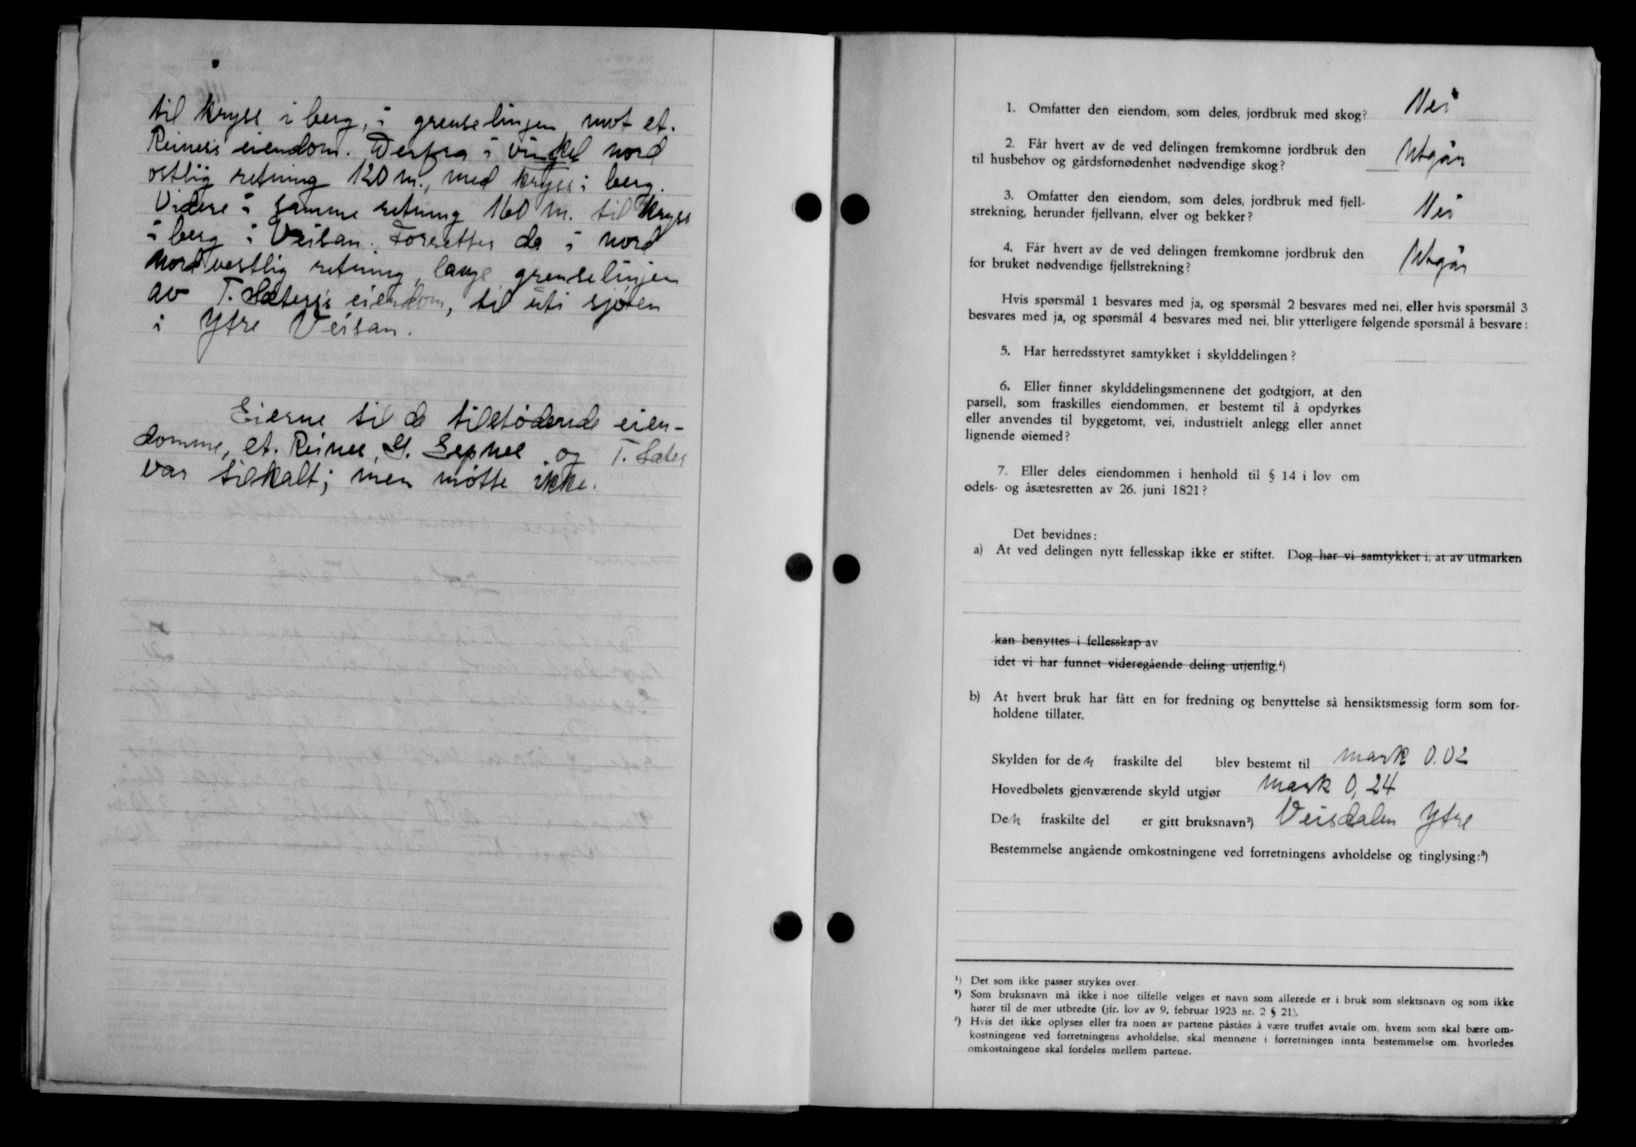 til kryss i berg, i grenselinjen mot et.
Reiness eiendom. Derfra i vinkel nord
ostlig retning 120 m., med kryss i berg.
Videre i samme retning 160 m. til kryss
i berg i Veisan. Forsetter da i nord
nordvestlig retning, langs grenselinjen
av T. Sæters's eiendom, til uti sjøen
i Ytre Veisan.
Eierne til de tilstødende eien-
domme, et. Reines, Sepnes og T. Sæter
var tilkalt; men møtte ikke.
1. Omfatter den eiendom, som deles, jordbruk med skog? Nei
2. Får hvert av de ved delingen fremkomne jordbruk den
til husbehov og gårdsfornødenhet nødvendige skog? Utgår
3. Omfatter den eiendom, som deles, jordbruk med fjell-
strekning, herunder fjellvann, elver og bekker? Nei
4. Får hvert av de ved delingen fremkomne jordbruk den
for bruket nødvendige fjellstrekning? Utgår
Hvis spørsmål 1 besvares med ja, og spørsmål 2 besvares med nei, eller hvis spørsmål 3
besvares med ja, og spørsmål 4 besvares med nei, blir ytterligere følgende spørsmål å besvare:
5. Har herredsstyret samtykket i skylddelingen?
6. Eller finner skylddelingsmennene det godtgjort, at den
parsell, som fraskilles eiendommen, er bestemt til å opdyrkes
eller anvendes til byggetomt, vei, industrielt anlegg eller annet
lignende øiemed?
7. Eller deles eiendommen i henhold til § 14 i lov om
odels- og åsætesretten av 26. juni 1821?
Det bevidnes:
a) At ved delingen nytt fellesskap ikke er stiftet. Dog har vi samtykket i, at av utmarken
kan benyttes i fellesskap av
idet vi har funnet videregående deling utjenlig.¹)
b) At hvert bruk har fått en for fredning og benyttelse så hensiktsmessig form som for-
holdene tillater.
Skylden for den fraskilte del blev bestemt til mark 0.02
Hovedbølets gjenværende skyld utgjør mark 0,24
Den fraskilte del er gitt bruksnavn²) Veisdalen Ytre
Bestemmelse angående omkostningene ved forretningens avholdelse og tinglysing:³)
¹) Det som ikke passer strykes over.
²) Som bruksnavn må ikke i noe tilfelle velges et navn som allerede er i bruk som slektsnavn og som ikke
hører til de mer utbredte (jfr. lov av 9. februar 1923 nr. 2 § 21).
³) Hvis det ikke oplyses eller fra noen av partene påståes å være truffet avtale om, hvem som skal bære om-
kostningene ved forretningens avholdelse, skal mennene i forretningen innta bestemmelse om, hvorledes
omkostningene skal fordeles mellem partene.